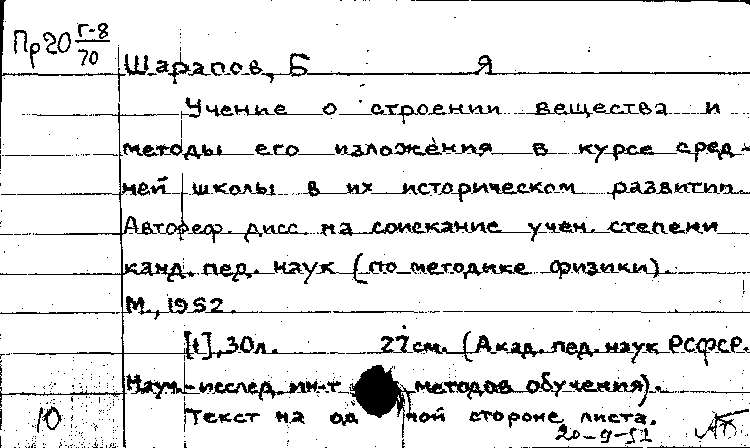 Пр20 Г-8/70
Шарапов, Б Я
Учение о строении вещества и
методы его изложения в курсе сред-
ней школы в их историческом развитии.
Автореф. дисс. на соискание учен. степени
канд. пед. наук (по методике физики).
М., 1952.
[1], 30л. 27см. (Акад. пед. наук РСФСР.
Научн.-исслед. ин-т методов обучения).
Текст на одной стороне листа.
10 20-9-52